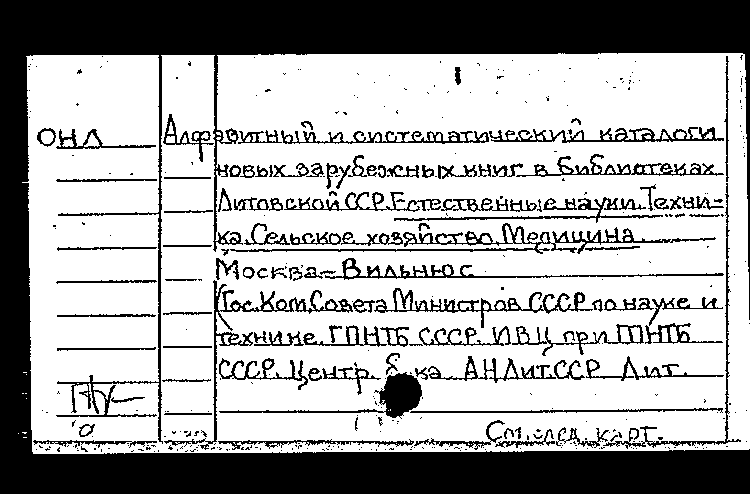 ОНЛ Алфавитный и систематический каталоги
новых зарубежных книг в библиотеках
Литовской ССР. Естественные науки. Техни-
ка. Сельское хозяйство. Медицина.
Москва - Вильнюс
(Гос. Ком. Совета Министров СССР по науке и
технике. ГПНТБ СССР. ИВЦ при ГПНТБ
СССР. Центр. б-ка АН Лит.ССР Лит.
См. след. карт.